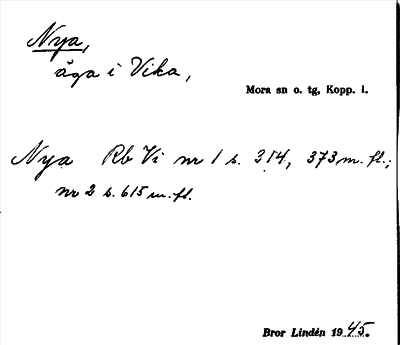 Nya,
åga i Vika,
Mora sn o. tg, Kopp. l.
Nya Rb Vi nr 1 s. 314, 373 m. fl.;
nr 2 s. 615 m. fl.
Bror Lindén 1945.